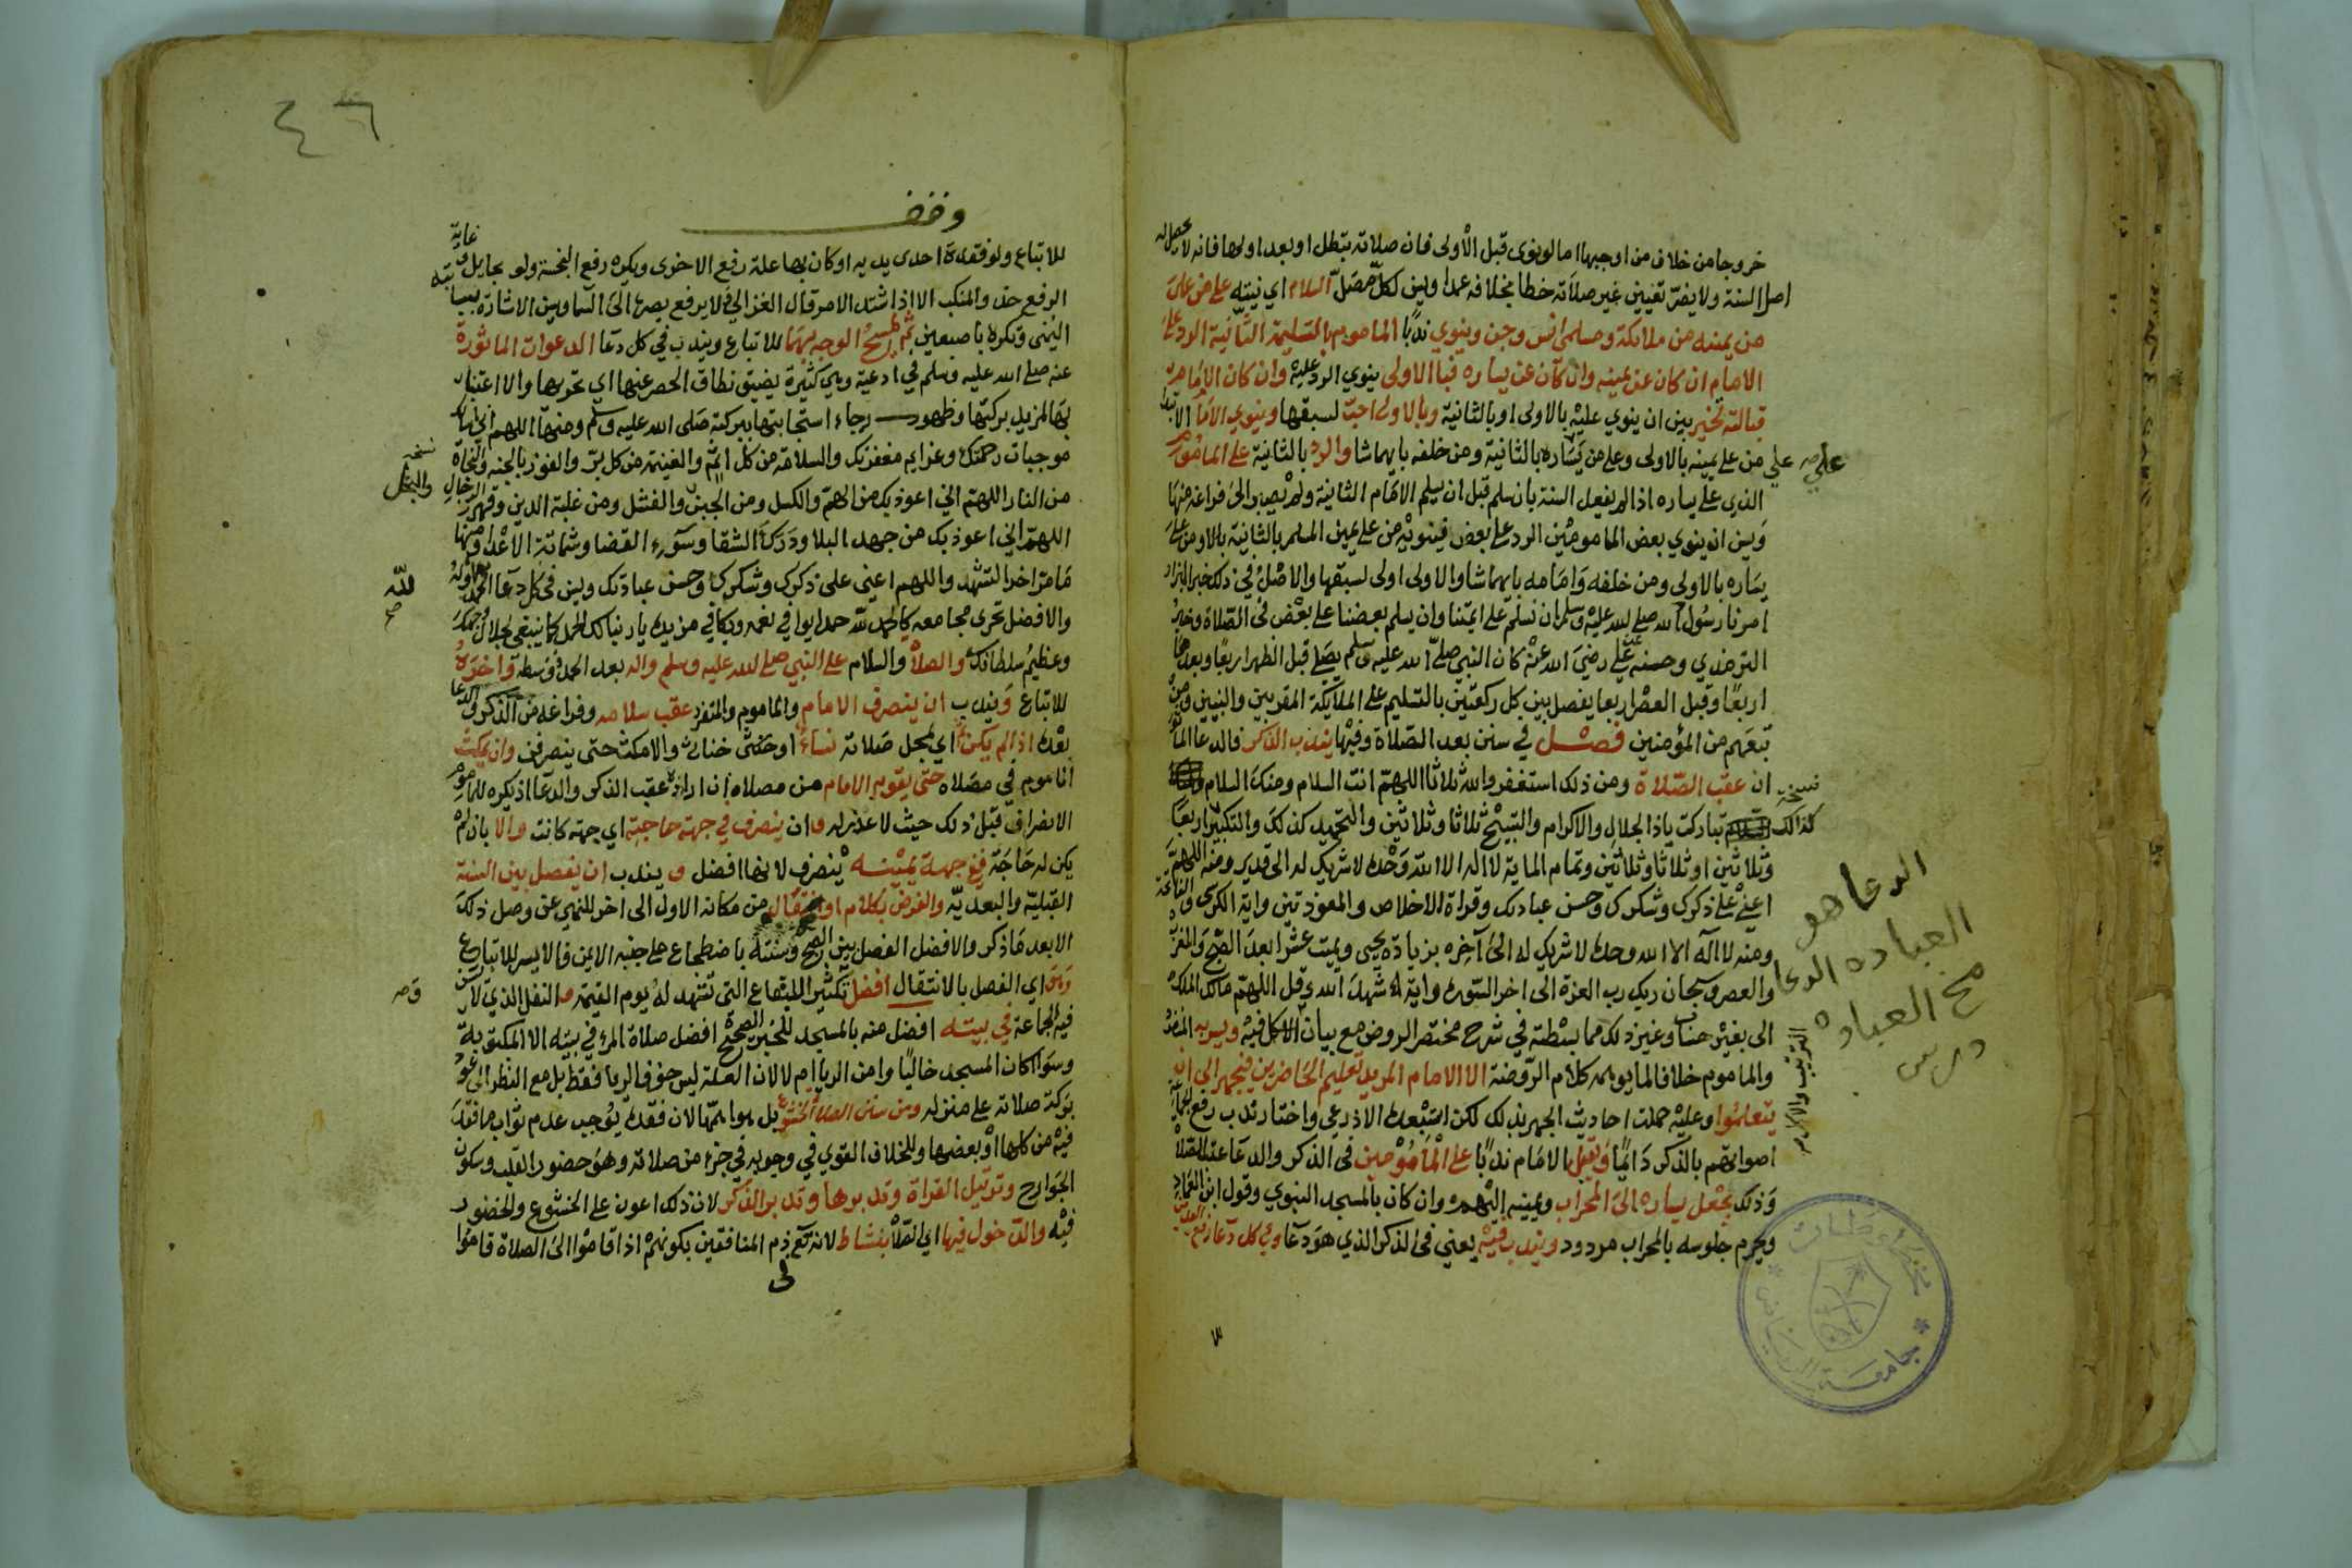 خروجا من خلاف من اوجبها اما لو نوى قبل الأولى فان صلاته تبطل او بعد اولها فانه لا يحصل له
اصل السنة ولا يضر تعيين غير صلاته خطا بخلافه عمدا وسن لكل مصل السلام اي نيته على من على
من يمينه من ملائكة ومسلمى انس وجن وينوي ندبًا الماموم بالتسليمة الثانية الرد على
الامام ان كان عن يمينه وان كان عن يساره فبا الاولى ينوي الرد عليه وان كان الامام
قبالته تخير بين ان ينوي عليه بالاولى او بالثانية وبالاولى احب لسبقها وينوي الامام الابتدا
علي من على يمينه بالاولى وعلى من يساره بالثانية ومن خلفه بايهما شا والرد بالثانية على الماموم
الذي على يساره اذا لم يفعل السنة بان سلم قبل ان يسلم الامام الثانية ولم يصبر الى فراغه منها
وسن ان ينوي بعض المامومين الرد على بعض فينويه من على يمين المسلم بالثانية بالاو من على
يساره بالاولى ومن خلفه وامامه بايهما شا والاولى اولى لسبقها والاصل في ذلك خبر البزار
امرنا رسول الله صلى الله عليه وسلم ان نسلم على ايمتنا وان يسلم بعضنا على بعض في الصلاة وخبر
الترمذي وحسنه عن علي رضي الله عنه كان النبي صلى الله عليه وسلم يصلي قبل الظهر اربعًا وبعدها
اربعًا وقبل العصر اربعا يفصل بين كل ركعتين بالتسليم على الملايكة المقربين والنبيين ومن
تبعهم من المؤمنين فصل في سنن بعد الصلاة وفيها يندب الذكر فالدعا الماثور
ان عقب الصلاة ومن ذلك استغفر والله ثلاثا اللهم انت السلام ومنك السلام
تباركت ياذا الجلال والاكرام والتسبيح ثلاثا وثلاثين والتحميد كذلك والتكبير اربعًا
وثلاثين او ثلاثا وثلاثين وتمام الماية لا اله الا الله وحده لا شريك له الى قدير ومنه اللهم
اعني على ذكرك وشكرك وحسن عبادتك وقراة الاخلاص والمعوذتين واية الكرسي والفاتحة
ومنه لا اله الا الله وحده لا شريك له الى آخره بزيادة يحيى ويميت عشرا بعد الصبح والمغرب
والعصر وسبحان ربك رب العزة الى اخر السورة واية شهد الله وقل اللهم مالك الملك
الى بغير حساب وغير ذلك مما بسطته في شرح مختصر الروض مع بيان الاكل فيه ويسر به المنفرد
والماموم خلافا لما يوهمه كلام الروضة الا الامام المريد تعليم الحاضرين فيجهر الى ان
يتعلموا وعليه حملت احاديث الجهر بذلك لكن استبعده الاذرعي واختار ندب رفع الجماعة
اصواتهم بالذكر دائمًا ويقبل الامام ندبًا على المامومين في الذكر والدعا عقب الصلاة
وذلك بجعل يساره الى المحراب ويمينه اليهم وان كان بالمسجد النبوي وقول ابن العماد
ويحرم جلوسه بالمحراب مردود ويندب فيه يعني في الذكر الذي هو دعا وفي كل دعا رفع اليدين
علي صح
نسخة
كذالك
الدعا هو
العباده الدعا
مخ العباده
جامعة الرياض
٤٦
وقف
للاتباع ولو فقدت احدى يديه او كان بها علة رفع الاخرى ويكره رفع النجسة ولو بحايل وغاية
الرفع حذو المنكب الا اذا اشتد الامر قال الغزالي ولا يرفع بصره الى السما وسن الاشارة بسبابته
اليمنى وتكره باصبعين ثم مسح الوجه بهما للاتباع ويندب في كل دعا الدعوات الماثورة
عنه صلى الله عليه وسلم في ادعية وهي كثيرة يضيق نطاق الحصر عنها اي تحريها والاعتنا
بها لمزيد بركتها وظهور رجاء استجابتها ببركته صلى الله عليه وسلم ومنها اللهم اني اسالك
موجبات رحمتك وعزايم مغفرتك والسلامة من كل اثم والغنيمة من كل بر والفوز بالجنة والنجاة
من النار اللهم اني اعوذ بك من الهم والكسل ومن الجبن والفشل ومن غلبة الدين وقهر الرجال
اللهم اني اعوذ بك من جهد البلا ودرك الشقا وسوء القضا وشماتة الاعدا ومنها
ما مر اخر التشهد واللهم اعني على ذكرك وشكرك وحسن عبادتك وسن في كل دعا الحمد اوله
والافضل تحري مجامعه كالحمد لله حمدا يوافي نعمه ويكافي مزيده يا ربنا لك الحمد كما ينبغي لجلال وجهك
وعظيم سلطانك والصلاة والسلام على النبي صلى الله عليه وسلم واله بعد الحمد فوسطه واخره
للاتباع ويندب ان ينصرف الامام والماموم والمنفرد عقب سلامه وفراغه من الذكر والدعا
بعده اذا لم يكن ثم اي لمحل صلاته نساء او خنثى خناث والا مكث حتى ينصرفن وان يمكث
الماموم في مصلاه حتى يقوم الامام من مصلاه ان اراد عقب الذكر والدعا اذ يكره للماموم
الانصراف قبل ذلك حيث لا عذر له وان ينصرف في جهة حاجته اي جهة كانت والا بان لم
يكن له حاجة ففي جهة يمينه ينصرف لانها افضل و يندب ان يفصل بين السنة
القبلية والبعدية والفرض بكلام او انتقال من مكانه الاول الى اخر للنهي عن وصل ذلك
الا بعد ما ذكر والافضل الفصل بين الصبح وسنته باضطجاع على جنبه الايمن فالايسر للاتباع
وهو اي الفصل بالانتقال افضل تكثيرا للبقاع التي تشهد له يوم القيمة والنفل الذي لا تسن
فيه الجماعة في بيته افضل منه بالمسجد للخبر الصحيح افضل صلاة المرء في بيته الا المكتوبة
وسوا كان المسجد خاليًا وامن الريا ام لا لان العلة ليس خوف الريا فقط بل مع النظر الى عود
بركة صلاته على منزله ومن سنن الصلاة الخشوع بل هو اهمها لان فقده يوجب عدم ثواب ما فقد
فيه من كلها او بعضها وللخلاف القوي في وجوبه في جزء من صلاته وهو حضور القلب وسكون
الجوارح وترتيل القراة وتدبرها وتدبر الذكر لان ذلك اعون على الخشوع والحضور
فيه والدخول فيها اي الصلاة بنشاط لانه تع ذم المنافقين بكونهم اذا قاموا الى الصلاة قاموا
نسخة
والبخل
لله
صح